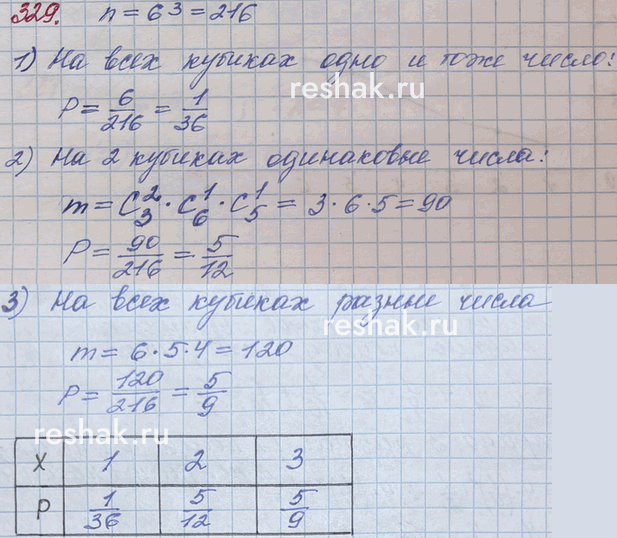 329. n = 6³ = 216
1) На всех кубиках одно и тоже число:
reshak.ru
P = 6/216 = 1/36
2) На 2 кубиках одинаковые числа:
m = C₃² · C₆¹ · C₅¹ = 3 · 6 · 5 = 90
P = 90/216 = 5/12
3) На всех кубиках разные числа
reshak.ru
m = 6 · 5 · 4 = 120
P = 120/216 = 5/9
reshak.ru
X 1 2 3
P 1/36 5/12 5/9